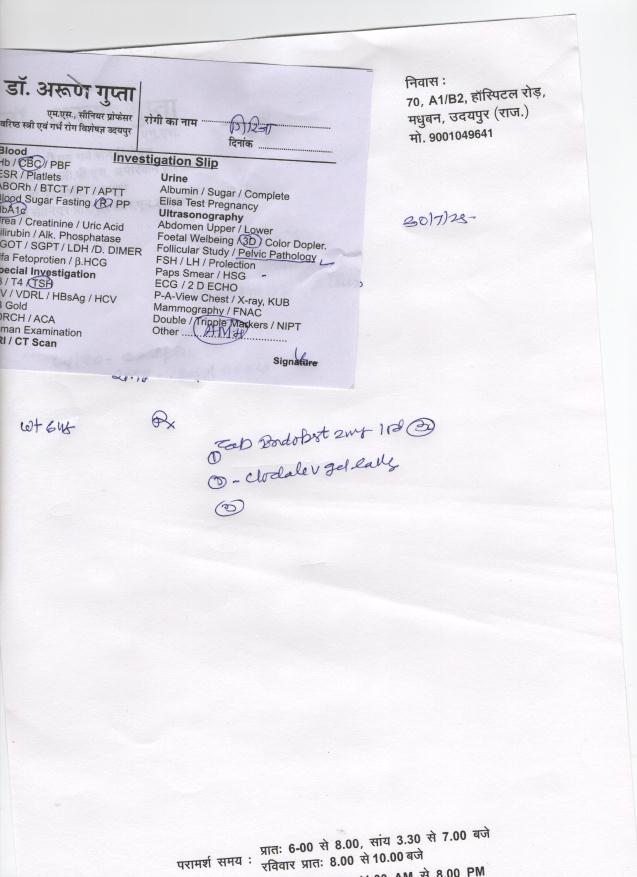 डॉ. अरूण गुप्ता
एम.एस., सीनियर प्रोफेसर
वरिष्ठ स्त्री एवं गर्भ रोग विशेषज्ञ उदयपुर
रोगी का नाम
दिनांक
Investigation Slip
Blood
Hb / CBC / PBF
ESR / Platlets
ABORh / BTCT / PT / APTT
Blood Sugar Fasting / R / PP
HbA1c
Urea / Creatinine / Uric Acid
Bilirubin / Alk. Phosphatase
SGOT / SGPT / LDH /D. DIMER
Alfa Fetoprotien / β.HCG
Special Investigation
/ T4 / TSH
V / VDRL / HBsAg / HCV
Gold
ORCH / ACA
man Examination
RI / CT Scan
Urine
Albumin / Sugar / Complete
Elisa Test Pregnancy
Ultrasonography
Abdomen Upper / Lower
Foetal Welbeing / 3D / Color Dopler.
Follicular Study / Pelvic Pathology
FSH / LH / Prolection
Paps Smear / HSG
ECG / 2 D ECHO
P-A-View Chest / X-ray, KUB
Mammography / FNAC
Double / Tripple Markers / NIPT
Other AMH
Signature
निवास :
70, A1/B2, हॉस्पिटल रोड़,
मधुबन, उदयपुर (राज.)
मो. 9001049641
30/7/25
Rx
① Tab 2mg
② -
③
परामर्श समय : प्रातः 6-00 से 8.00, सांय 3.30 से 7.00 बजे
रविवार प्रातः 8.00 से 10.00 बजे
AM से 8.00 PM